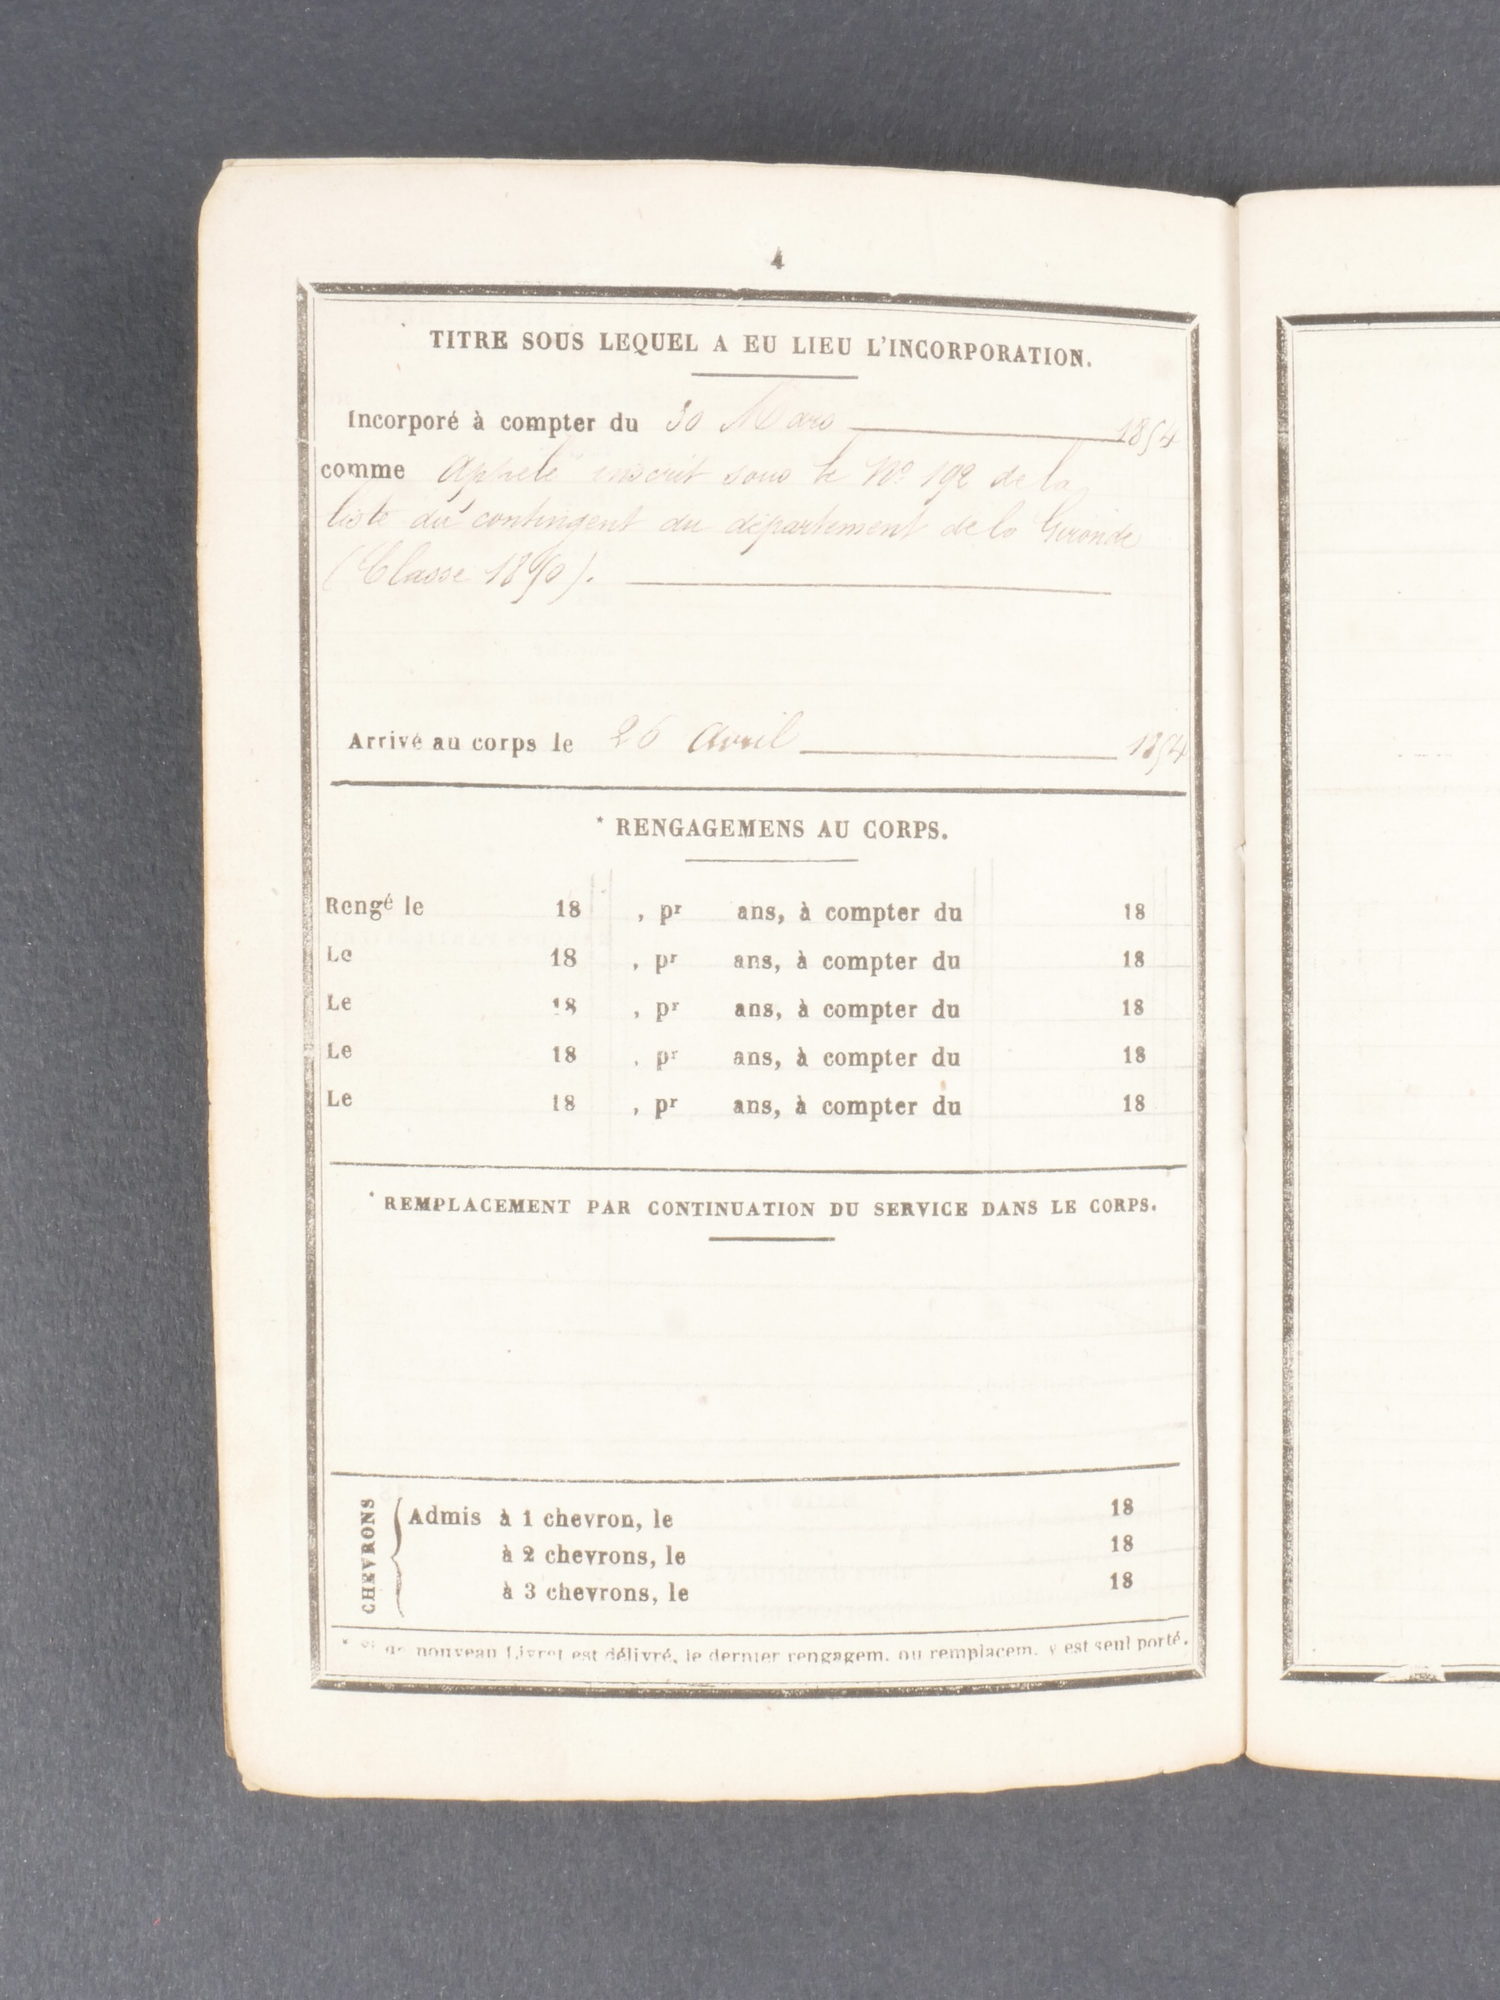 4
TITRE SOUS LEQUEL A EU LIEU L'INCORPORATION.
Incorporé à compter du 30 Mars 1854
comme Appelé inscrit sous le No 192 de la
liste du contingent du département de la Gironde
(Classe 1850).
Arrivé au corps le 26 avril 1854
* RENGAGEMENS AU CORPS.
Rengé le 18 , pr ans, à compter du 18
Le 18 , pr ans, à compter du 18
Le 18 , pr ans, à compter du 18
Le 18 , pr ans, à compter du 18
Le 18 , pr ans, à compter du 18
* REMPLACEMENT PAR CONTINUATION DU SERVICE DANS LE CORPS.
CHEVRONS
Admis à 1 chevron, le 18
à 2 chevrons, le 18
à 3 chevrons, le 18
* nouveau Livret est délivré, le dernier rengagem. ou remplacem. y est seul porté.